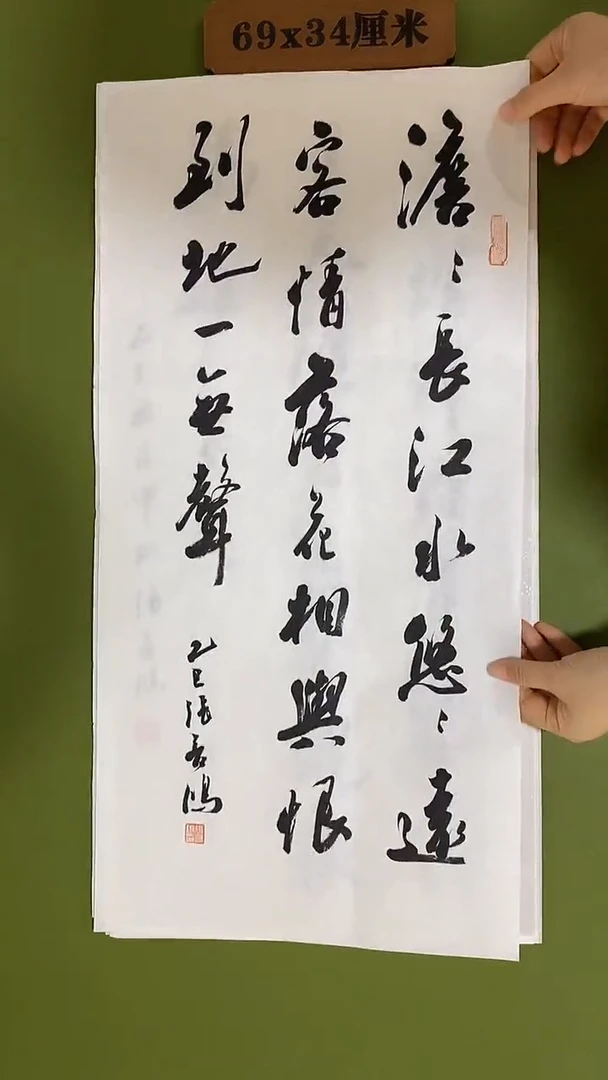 69x34厘米
澹〻長江水悠〻遠
客情落花相與恨
到地一無聲
乙巳張鴻